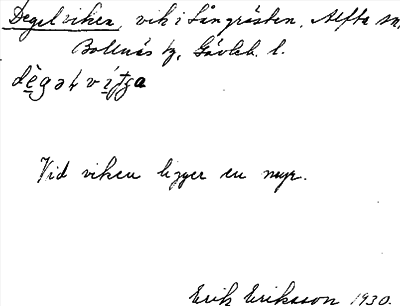 Degelviken, vik i Långrösten, Alfta sn,
Bollnäs tg, Gävleb. l.
Vid viken ligger en myr.
Erik Eriksson 1930.